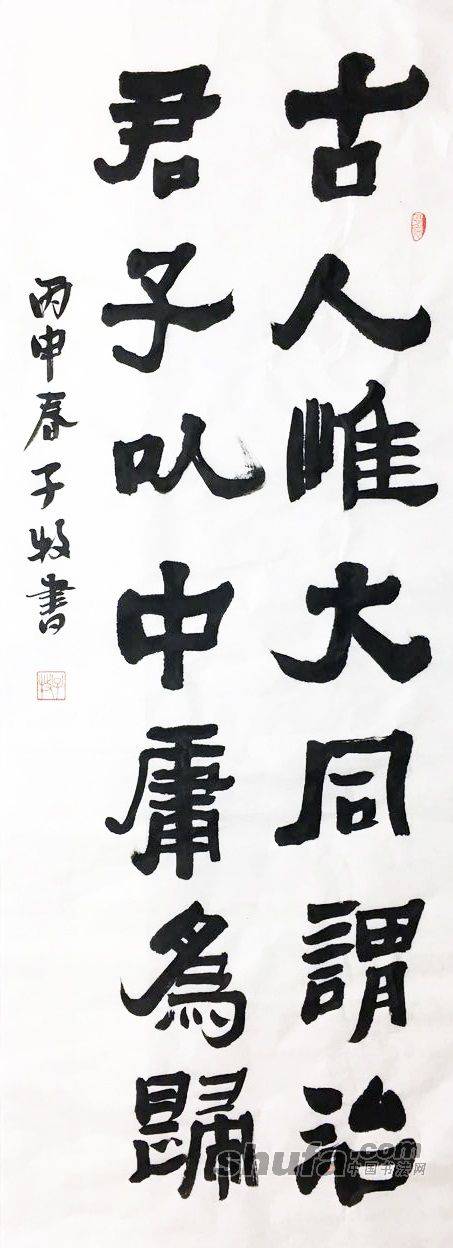 古人惟大同謂治
君子以中庸為歸
丙申春子牧書
子牧
shufa.com
中国书法网